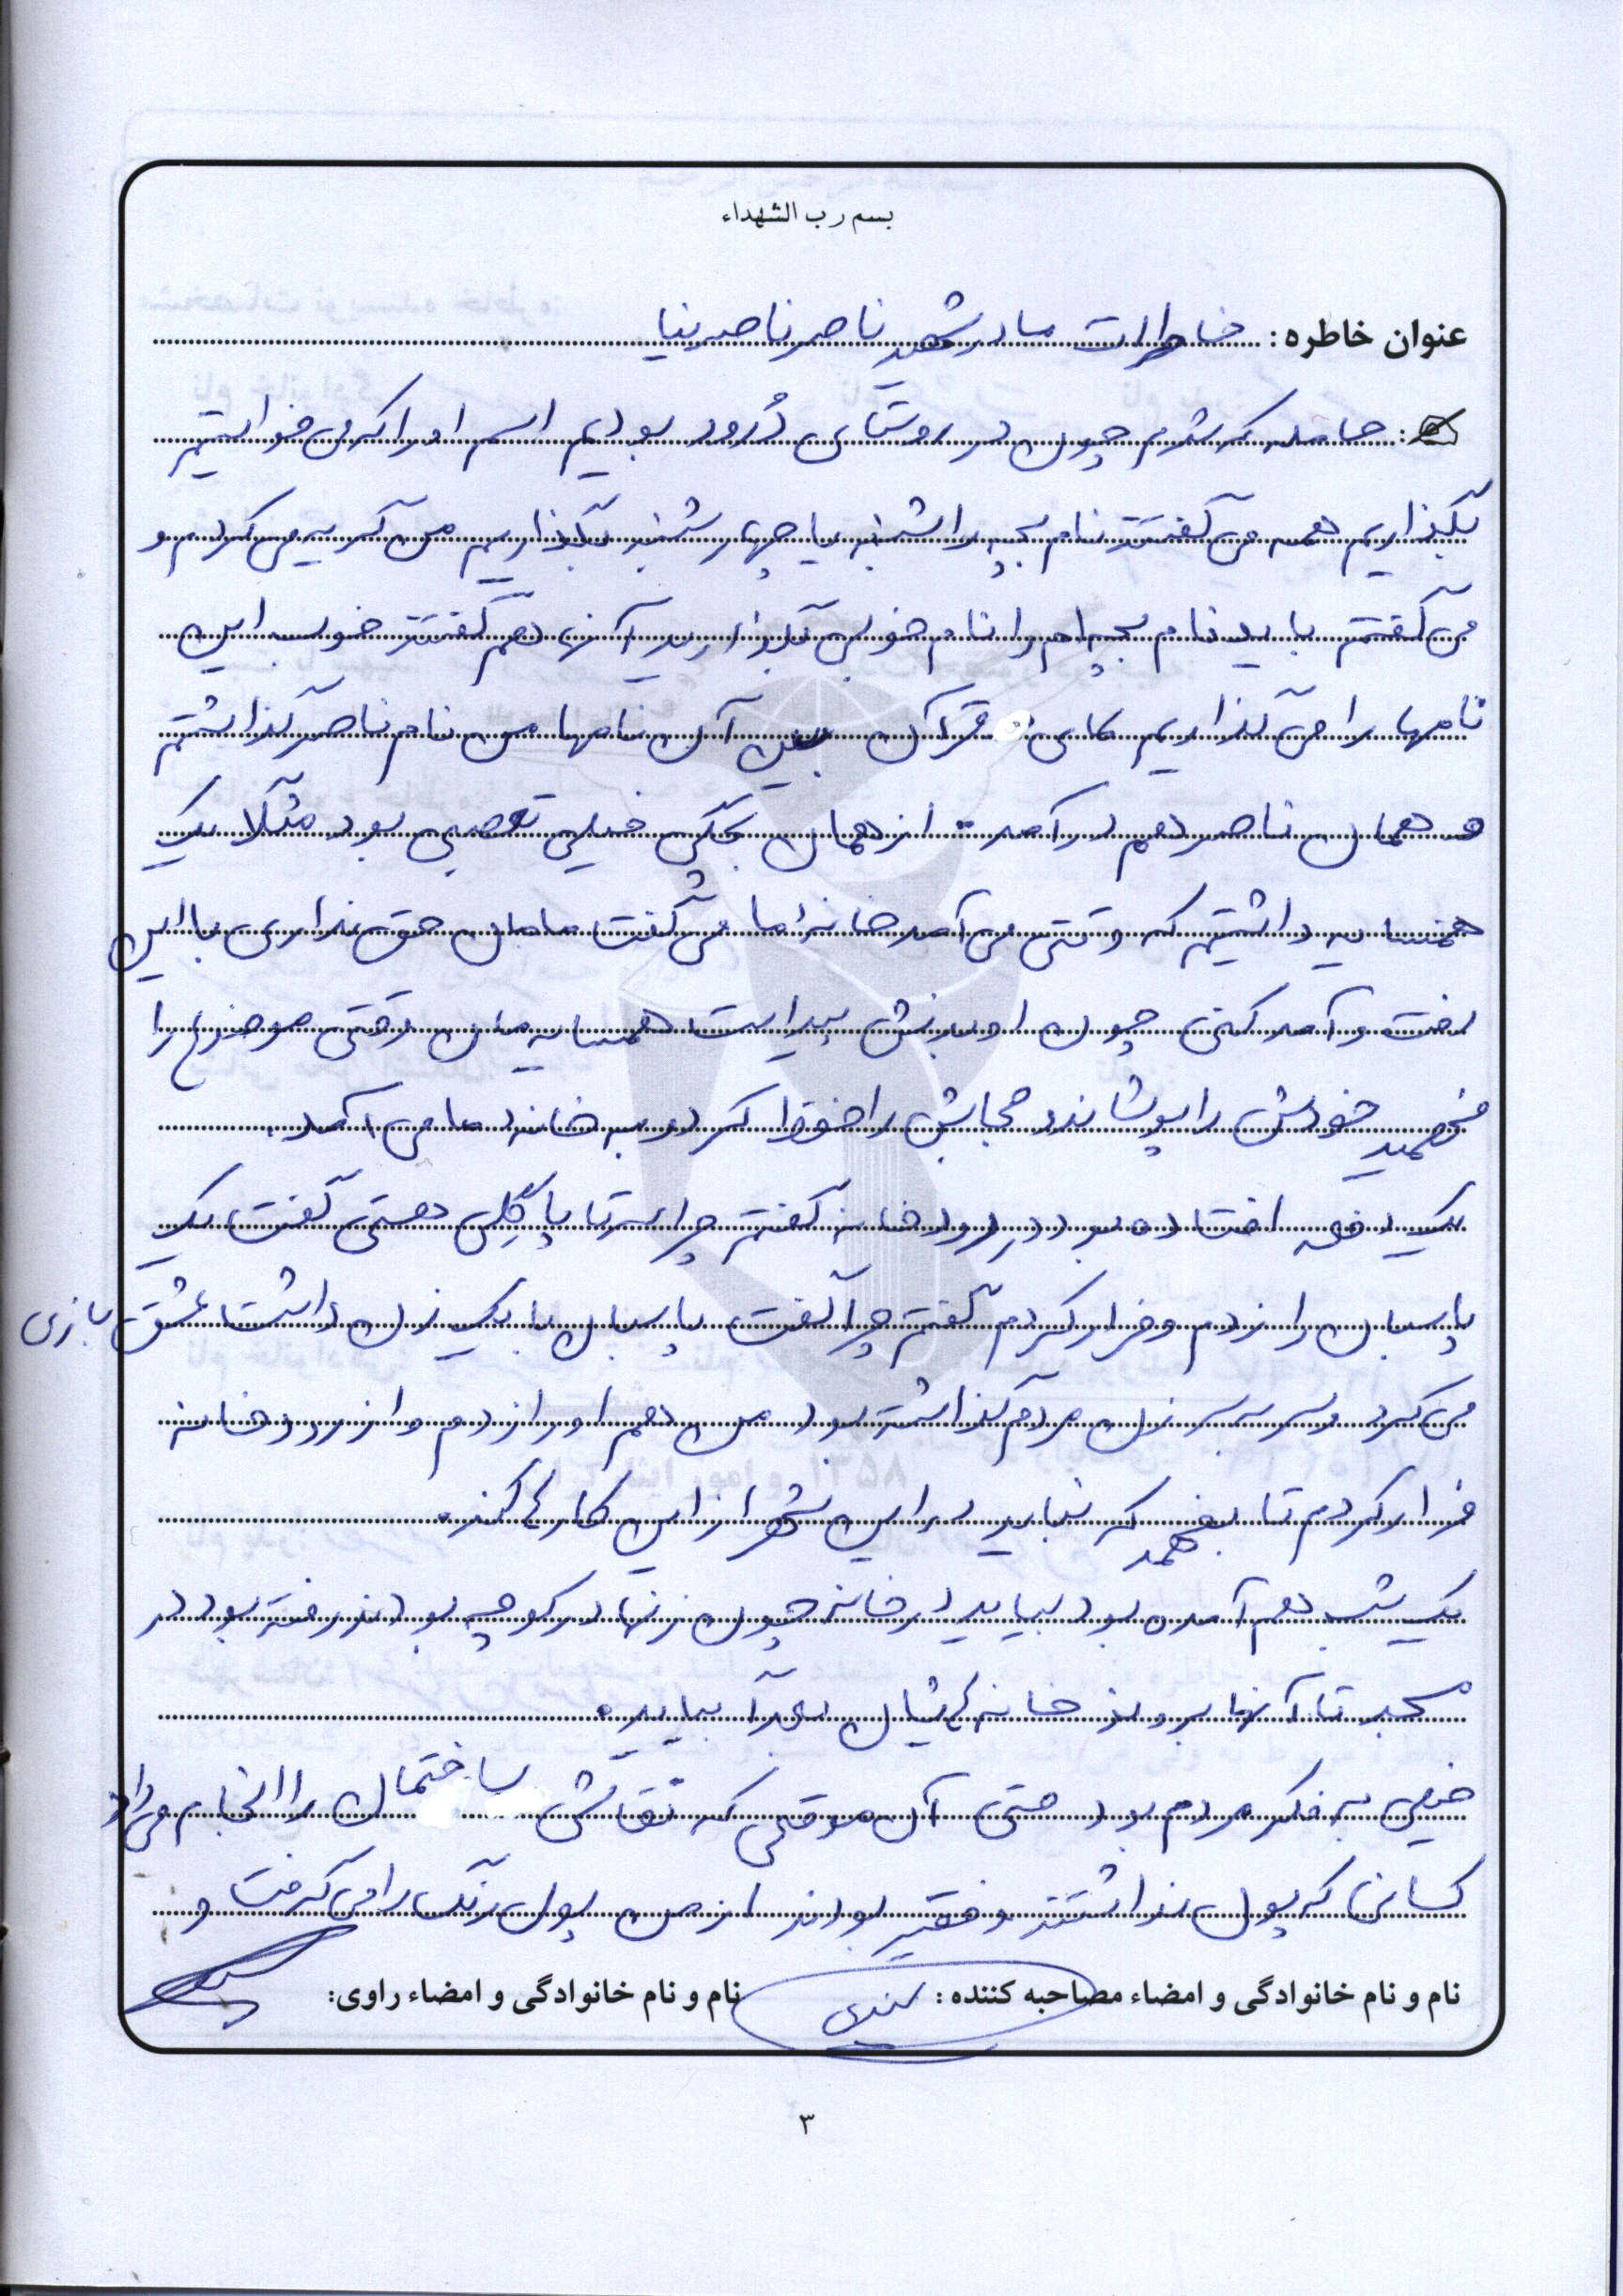 بسم رب الشهداء
عنوان خاطره: خاطرات مادر شهید ناصر ناصرنیا
حامله که شدم چون در روستای دُرود بودیم اسم او را اگر می خواستیم
بگذاریم همه می گفتند نام بچه را شنبه یا چهارشنبه بگذاریم من گریه می کردم و
می گفتم باید نام بچه ام را نام خوبی بگذارید آنها هم گفتند خوب این
نامها را می گذاریم لای قرآن بین آن نامها من نام ناصر گذاشتم
و همان ناصر هم درآمد. از همان بچگی خیلی تعصبی بود مثلاً یک
همسایه داشتیم که وقتی می آمد خانه ما می گفت مامان حق نداری با این
رفت و آمد کنی چون او بدنش پیداست همسایه مان وقتی موضوع را
فهمید خودش را پوشاند و حجابش را حفظ کرد و به خانه ما می آمد.
یک دفعه افتاده بود در رودخانه گفتم چرا سرتا پا گِلی هستی گفت یک
پاسبان را زدم و فرار کردم گفتم چرا گفت پاسبان با یک زن داشت عشق بازی
می کرد و سر به سر زن مردم گذاشته بود من هم او را زدم و از رودخانه
فرار کردم تا بفهمد که نباید در این شهر از این کارها کند.
یک شب هم آمده بود بیاید در خانه چون زنها در کوچه بودند رفته بود در
مسجد تا آنها بروند خانه هایشان بعداً بیاید.
خیلی به فکر مردم بود حتی آن موقعی که نقاشی ساختمان را انجام می داد
کسانی که پول نداشتند و فقیر بودند از من پول رنگ را می گرفت و
نام و نام خانوادگی و امضاء مصاحبه کننده: نام و نام خانوادگی و امضاء راوی:
۳